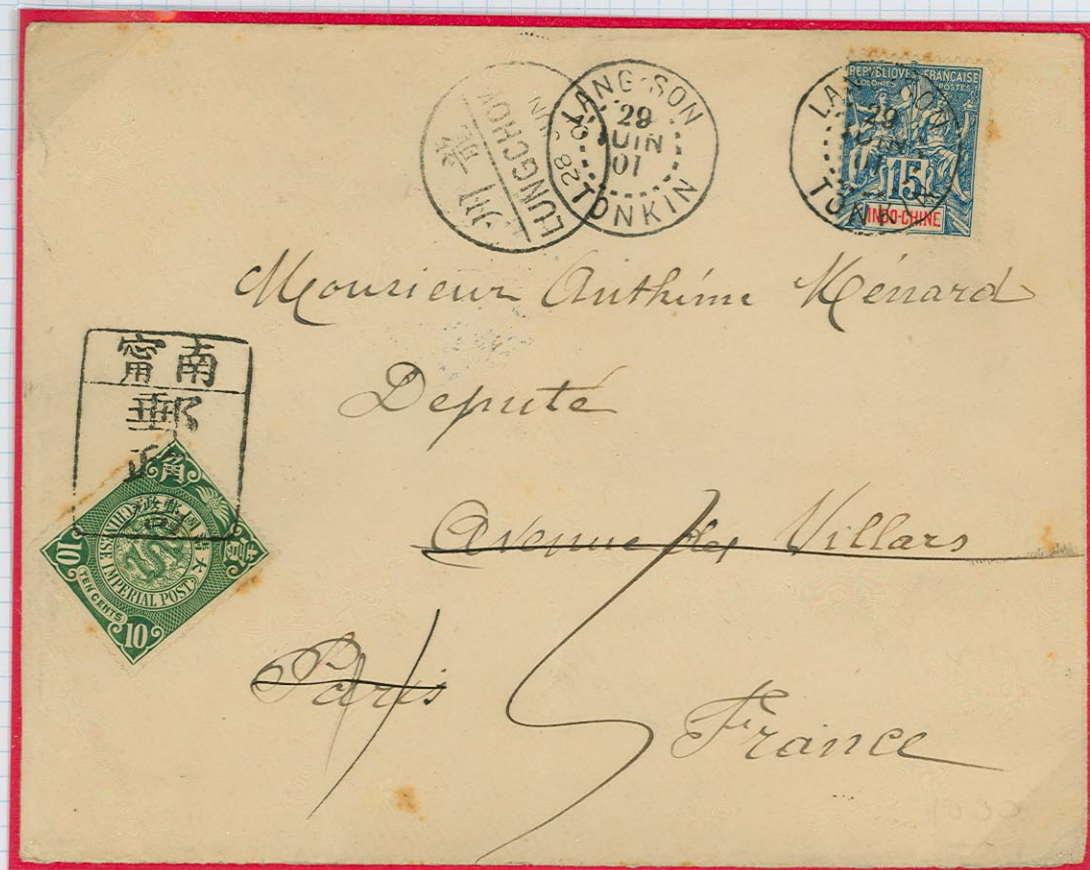 龍州
LUNGCHOW
28
LANG-SON
29
JUIN
01
TONKIN
LANG-SON
29
JUIN
TONKIN
REPUBLIQUE FRANÇAISE
COLONIES POSTES
15
INDO-CHINE
Monsieur Anthime Ménard
Deputé
Avenue de Villars
Paris
France
南甯
郵
政
局
大清國郵政
CHINESE IMPERIAL POST
壹角
10
TEN CENTS
10